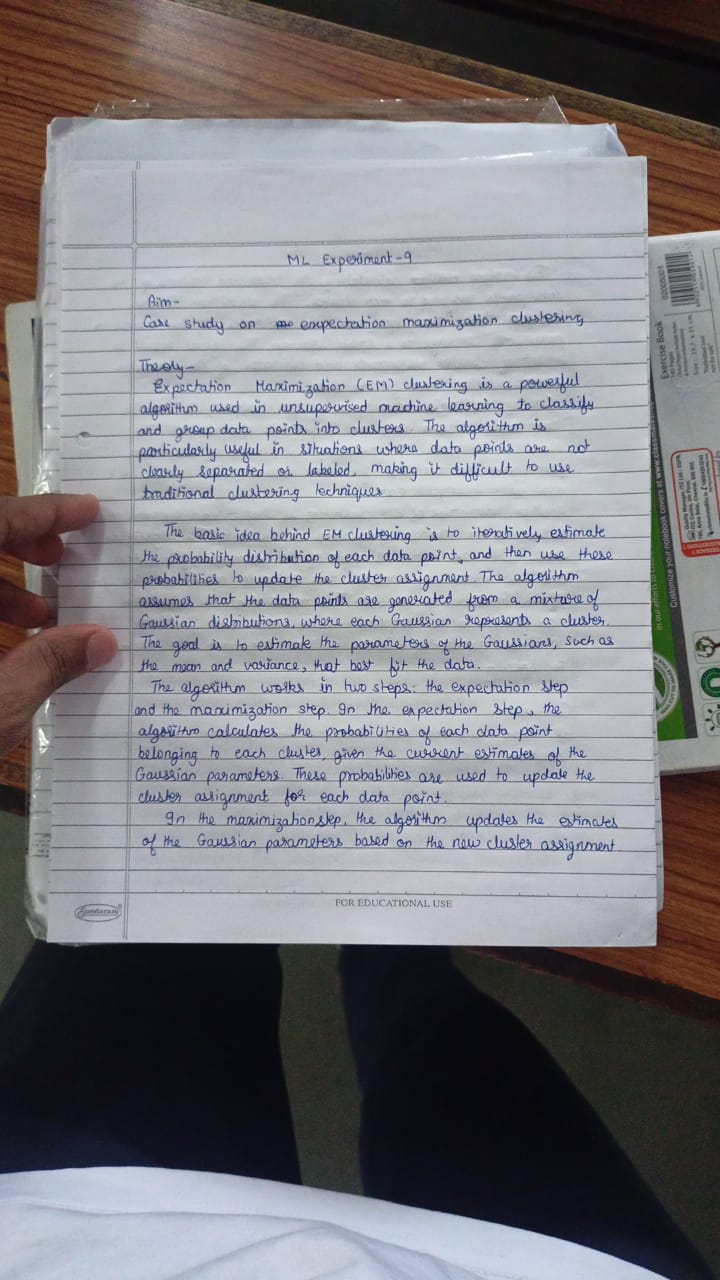 ML Experiment-9
Aim-
Case study on expectation maximization clustering
Theory-
Expectation Maximization (EM) clustering is a powerful
algorithm used in unsupervised machine learning to classify
and group data points into clusters. The algorithm is
particularly useful in situations where data points are not
clearly separated or labeled, making it difficult to use
traditional clustering techniques
The basic idea behind EM clustering is to iteratively estimate
the probability distribution of each data point, and then use these
probabilities to update the cluster assignment. The algorithm
assumes that the data points are generated from a mixture of
Gaussian distributions, where each Gaussian represents a cluster.
The goal is to estimate the parameters of the Gaussians, such as
the mean and variance, that best fit the data.
The algorithm works in two steps: the expectation step
and the maximization step. In the expectation step, the
algorithm calculates the probabilities of each data point
belonging to each cluster, given the current estimates of the
Gaussian parameters. These probabilities are used to update the
cluster assignment for each data point.
In the maximization step, the algorithm updates the estimates
of the Gaussian parameters based on the new cluster assignment.
Sundaram
FOR EDUCATIONAL USE
Exercise Book
02005001
Customize your notebook covers at www.classmate
In our efforts to